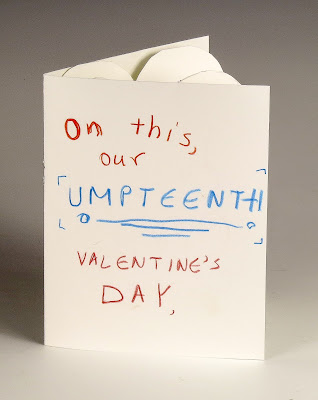 On this,
our
UMPTEENTH
VALENTINE'S
DAY,